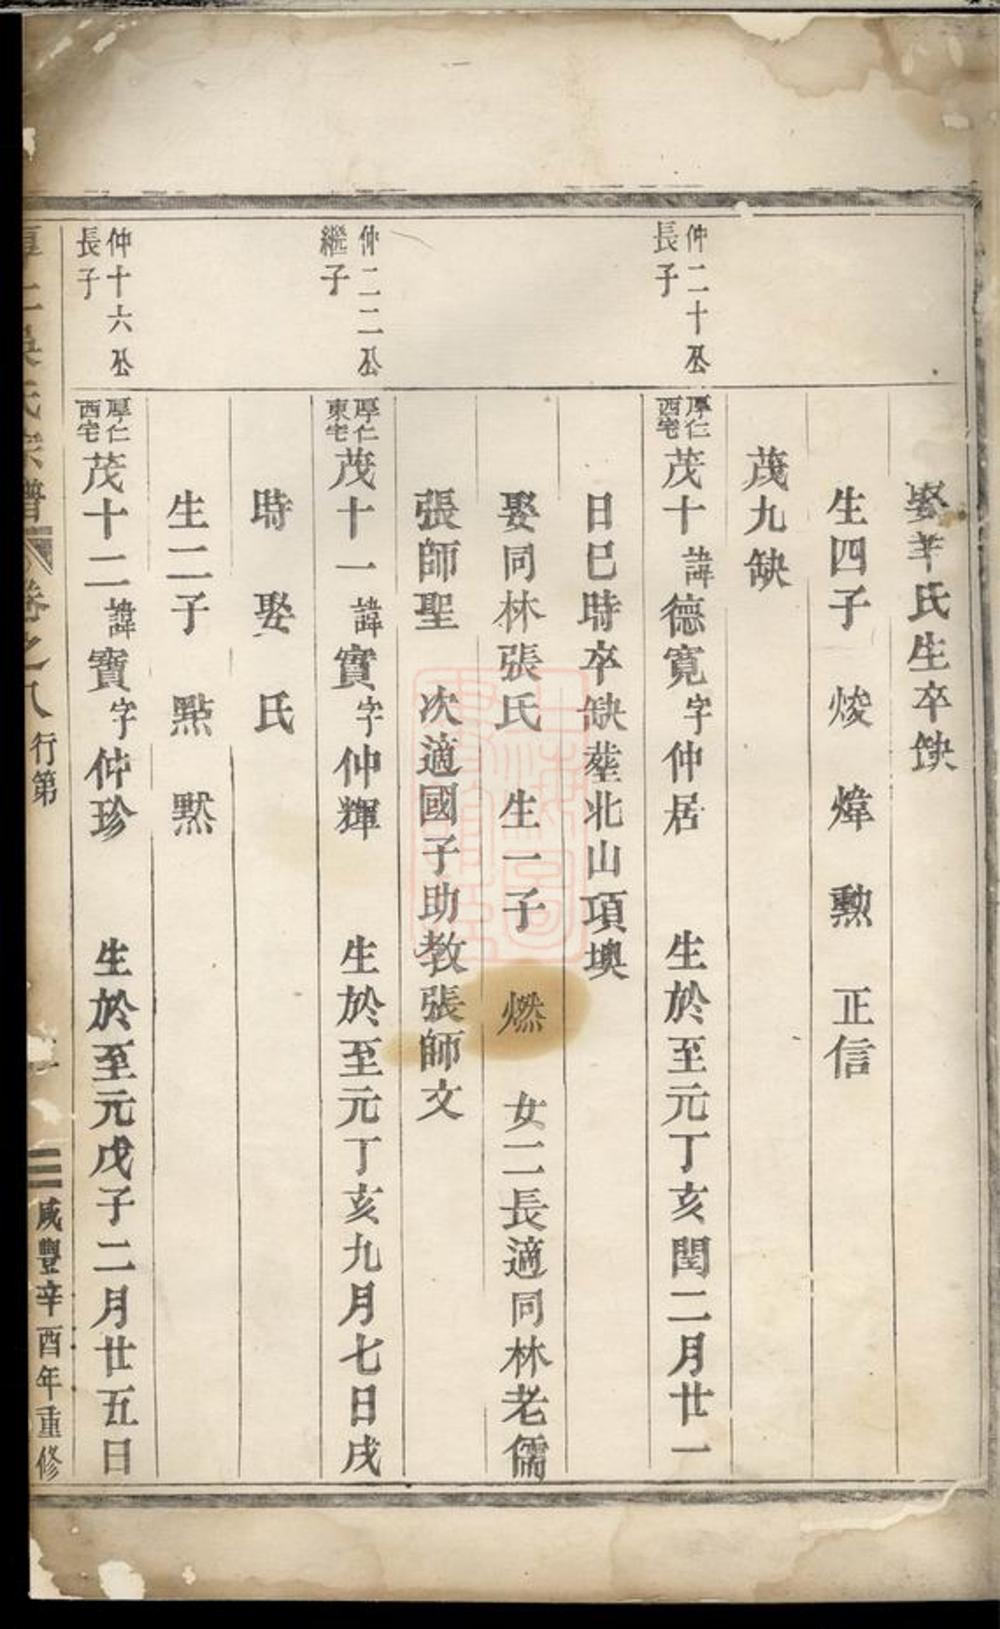 娶辛氏生卒缺
生四子 焌 煒 勲 正信
茂九缺
仲二十公
長子
厚仁
西宅
茂十諱德寬字仲居 生於至元丁亥閏二月廿一
日巳時卒缺塟北山項墺
娶同林張氏 生一子 燃 女二長適同林老儒
張師聖 次適國子助教張師文
仲二二公
繼子
厚仁
東宅
茂十一諱實字仲輝 生於至元丁亥九月七日戌
時 娶 氏
生二子 點 黙
仲十六公
長子
厚仁
西宅
茂十二諱寶字仲珍 生於至元戊子二月廿五日
厚仁吳氏宗譜 卷之八 行第 咸豐辛酉年重修